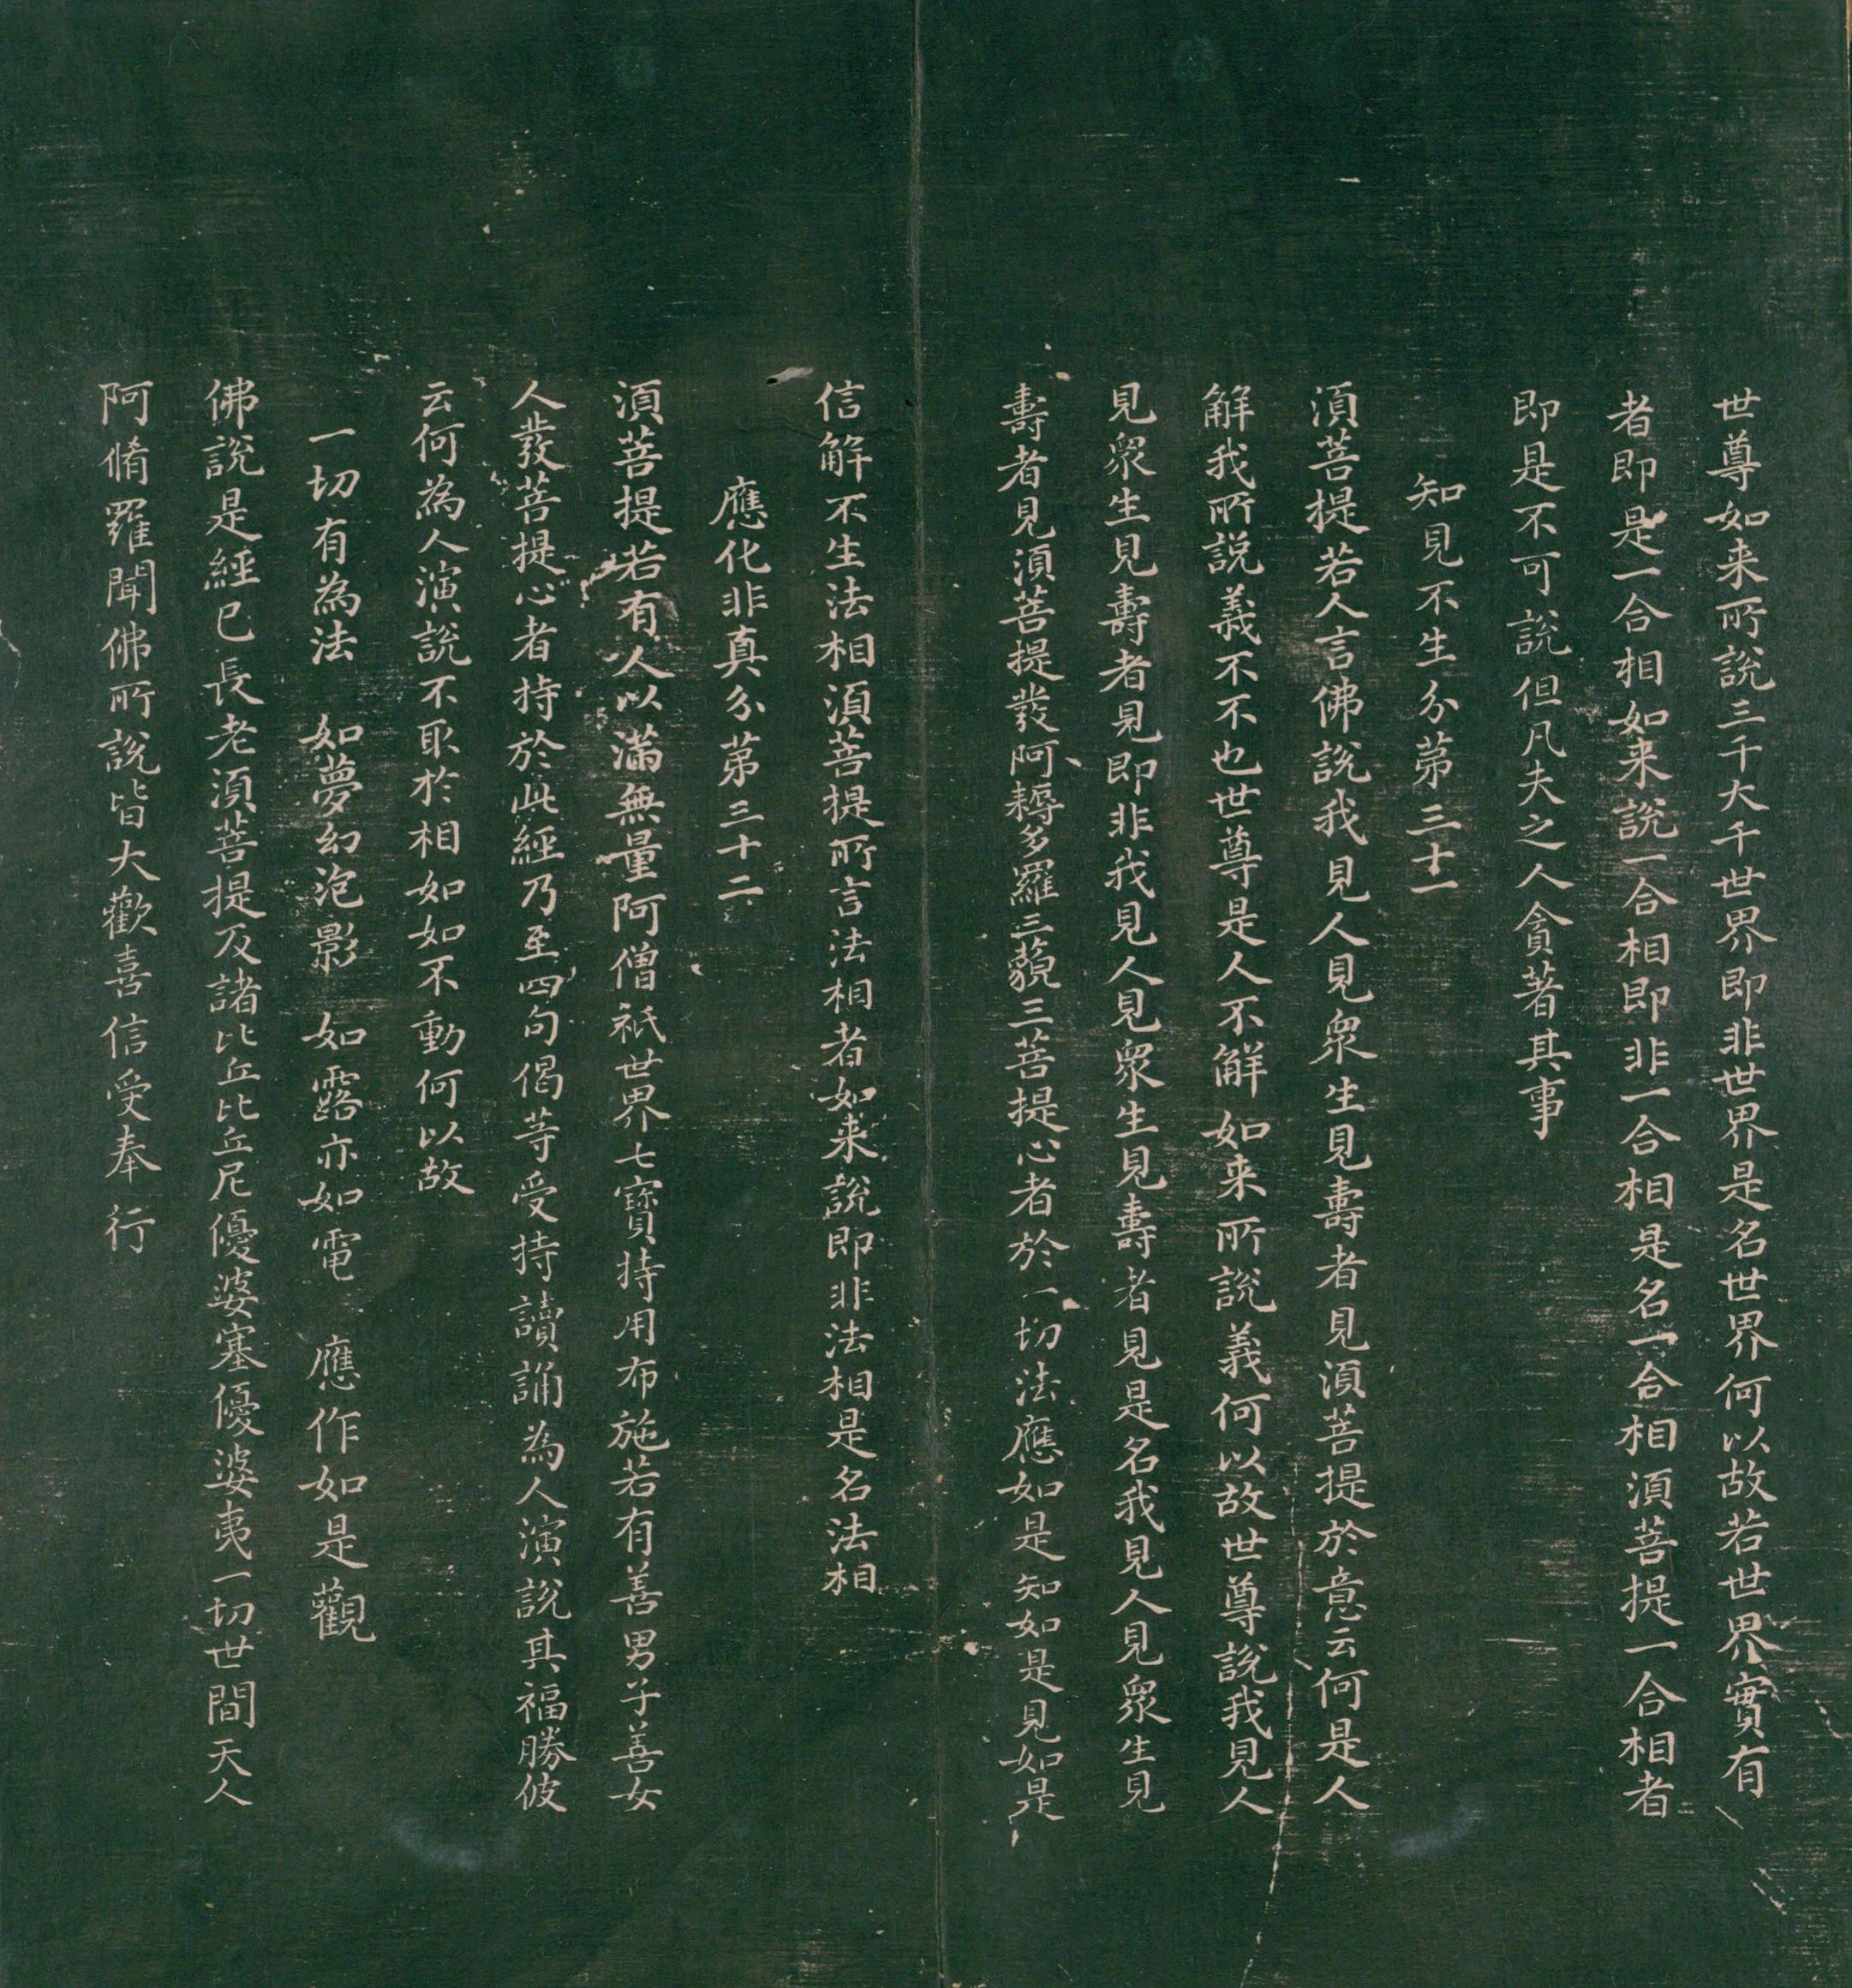 世尊如来所說三千大千世界即非世界是名世界何以故若世界實有
者即是一合相如来說一合相即非一合相是名一合相湏菩提一合相者
即是不可說但凡夫之人貪著其事
知見不生分第三十一
湏菩提若人言佛說我見人見衆生見壽者見湏菩提於意云何是人
解我所說義不不也世尊是人不解如来所說義何以故世尊說我見人
見衆生見壽者見即非我見人見衆生見壽者見是名我見人見衆生見
壽者見湏菩提發阿耨多羅三藐三菩提心者於一切法應如是知如是見如是
信解不生法相湏菩提所言法相者如来說即非法相是名法相
應化非真分第三十二
湏菩提若有人以滿無量阿僧祇世界七寶持用布施若有善男子善女
人發菩提心者持於此經乃至四句偈等受持讀誦為人演說其福勝彼
云何為人演說不取於相如如不動何以故
一切有為法 如夢幻泡影 如露亦如電 應作如是觀
佛說是經已長老湏菩提及諸比丘比丘尼優婆塞優婆夷一切世間天人
阿脩羅聞佛所說皆大歡喜信受奉行